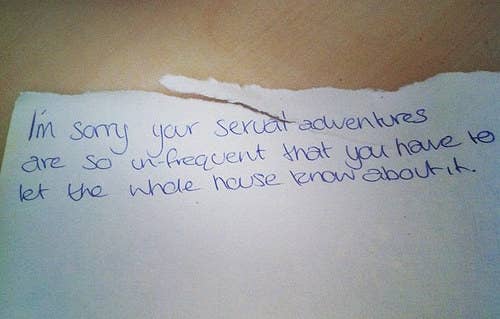 I'm sorry your sexual adventures
are so un-frequent that you have to
let the whole house know about it.